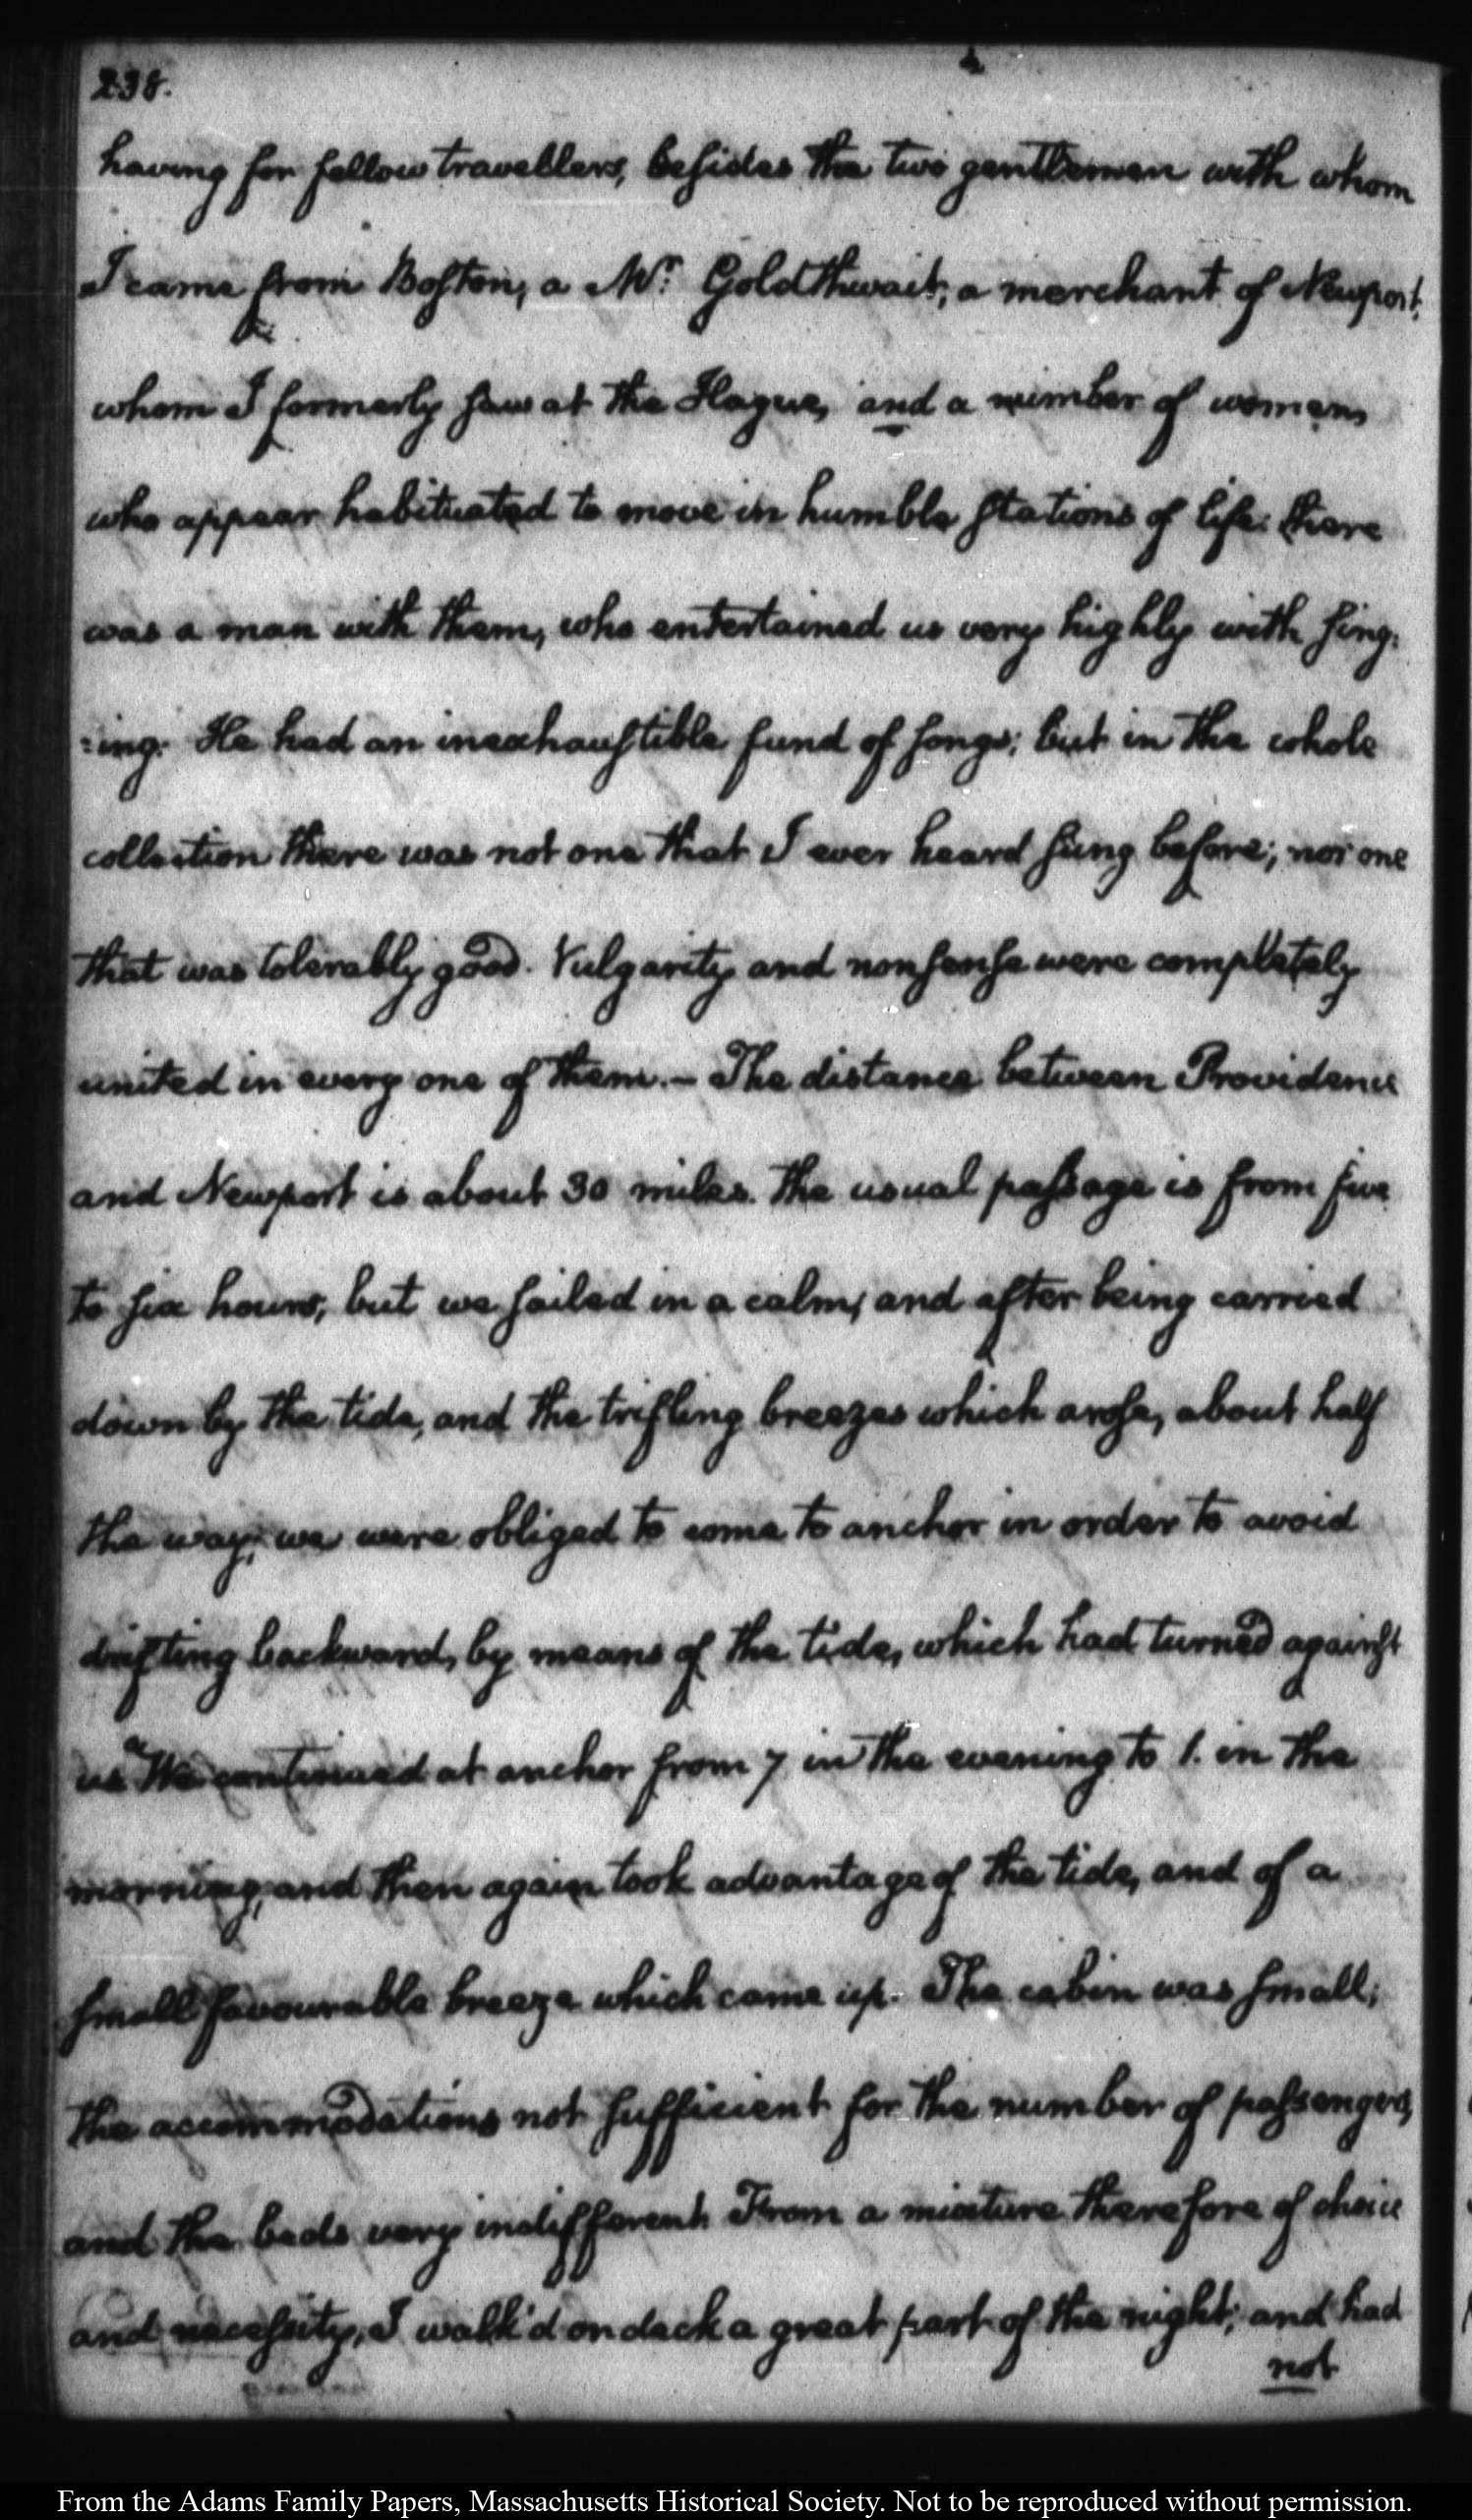 238.
having for fellow travellers, besides the two gentlemen with whom
I came from Boston, a Mr. Goldthwait, a merchant of Newport,
whom I formerly saw at the Hague, and a number of women,
who appear habituated to move in humble stations of life: there
was a man with them, who entertained us very highly with sing:
:ing. He had an inexhaustible fund of songs; but in the whole
collection there was not one that I ever heard sung before; nor one
that was tolerably good. Vulgarity and nonsense were completely
united in every one of them. — The distance between Providence
and Newport is about 30 miles. The usual passage is from five
to six hours, but we sailed in a calm, and after being carried
down by the tide, and the trifling breezes which arose, about half
the way, we were obliged to come to anchor in order to avoid
drifting backward, by means of the tide, which had turned against
us. We continued at anchor from 7 in the evening to 1. in the
morning, and then again took advantage of the tide, and of a
small favourable breeze which came up. The cabin was small;
the accommodations not sufficient for the number of passengers,
and the beds very indifferent. From a mixture therefore of choice
and necessity, I walk'd on deck a great part of the night; and had
not
From the Adams Family Papers, Massachusetts Historical Society. Not to be reproduced without permission.